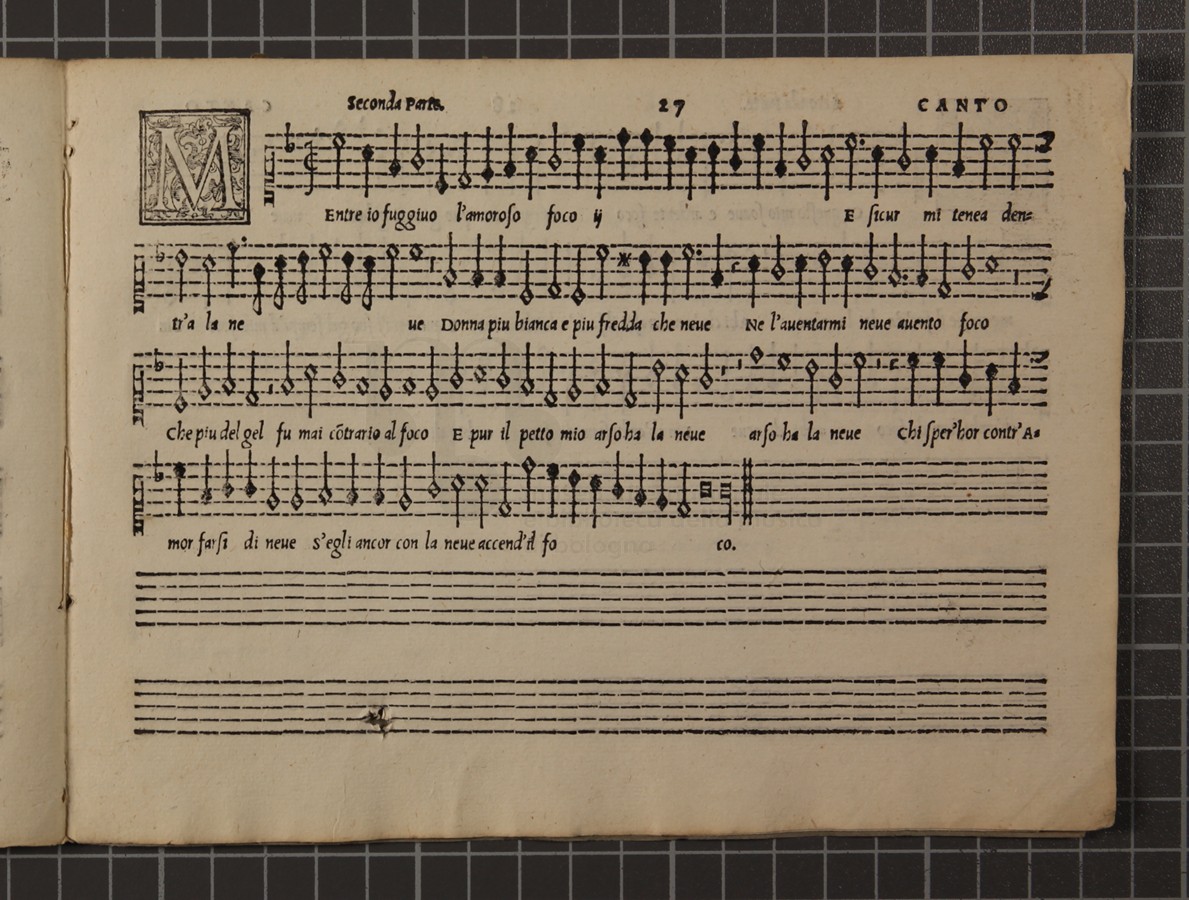 Seconda Parte. 27 CANTO
MEntre io fuggiuo l'amoroso foco ij E sicur mi tenea den=
tr'a la ne ue Donna piu bianca e piu fredda che neue Ne l'auentarmi neue auento foco
Che piu del gel fu mai cõtrario al foco E pur il petto mio arso ha la neue arso ha la neue Chi sper'hor contr'A=
mor farsi di neue s'egli ancor con la neue accend'il fo co.